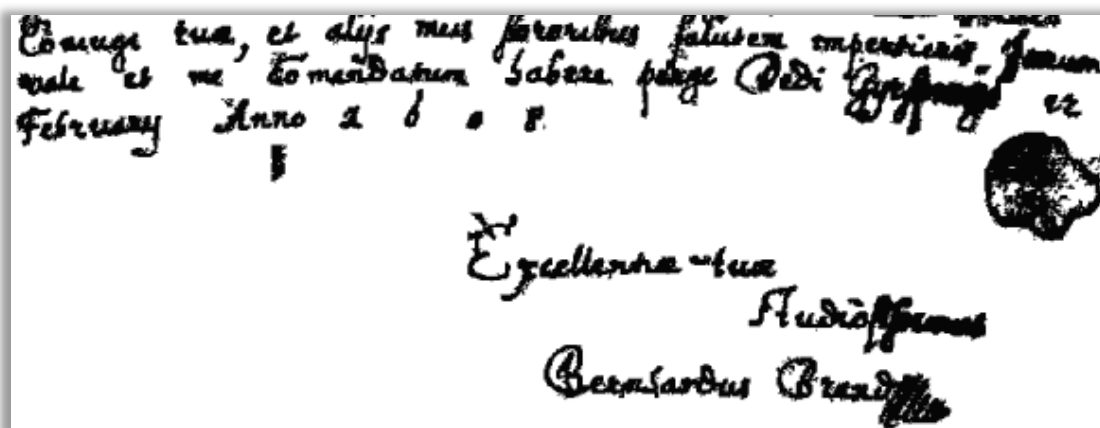 Coniugi tuæ, et alijs meis sororibus salutem impertieris.
vale et me Comendatum habere perge Dedi
February Anno
Excellentiæ tuæ
Studiosissimus
Bernhardus Brand